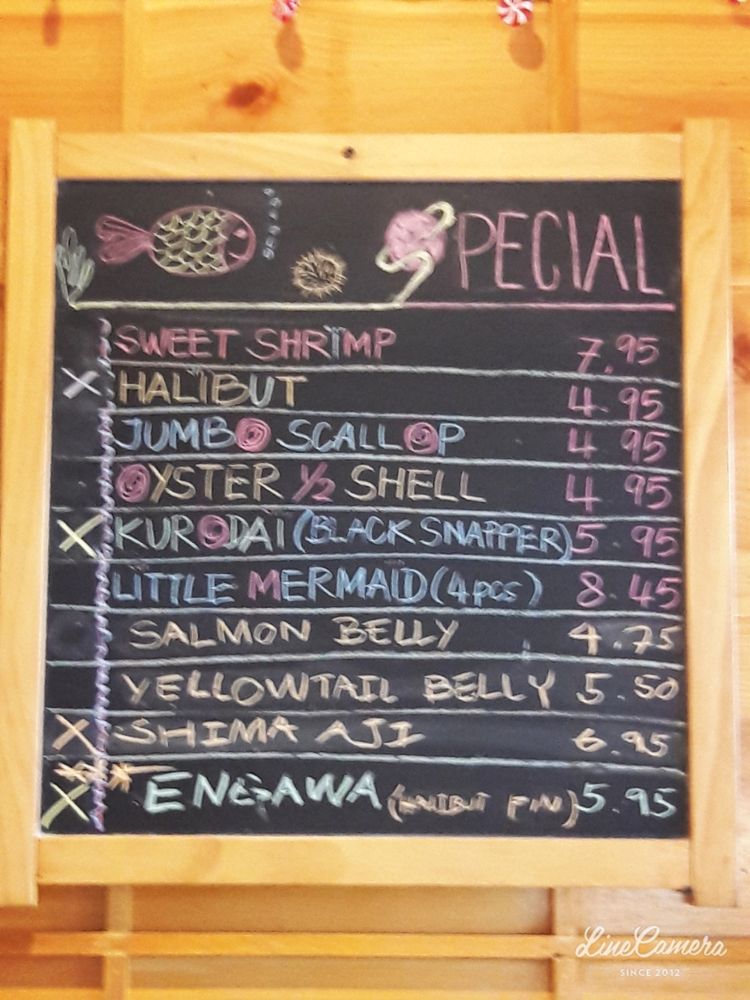 SPECIAL
SWEET SHRIMP 7.95
X HALIBUT 4.95
JUMBO SCALLOP 4.95
OYSTER 1/2 SHELL 4.95
X KURODAI (BLACK SNAPPER) 5.95
LITTLE MERMAID (4pcs) 8.45
SALMON BELLY 4.75
YELLOWTAIL BELLY 5.50
X SHIMA AJI 6.95
X ENGAWA ( FIN) 5.95
LineCamera
SINCE 2012